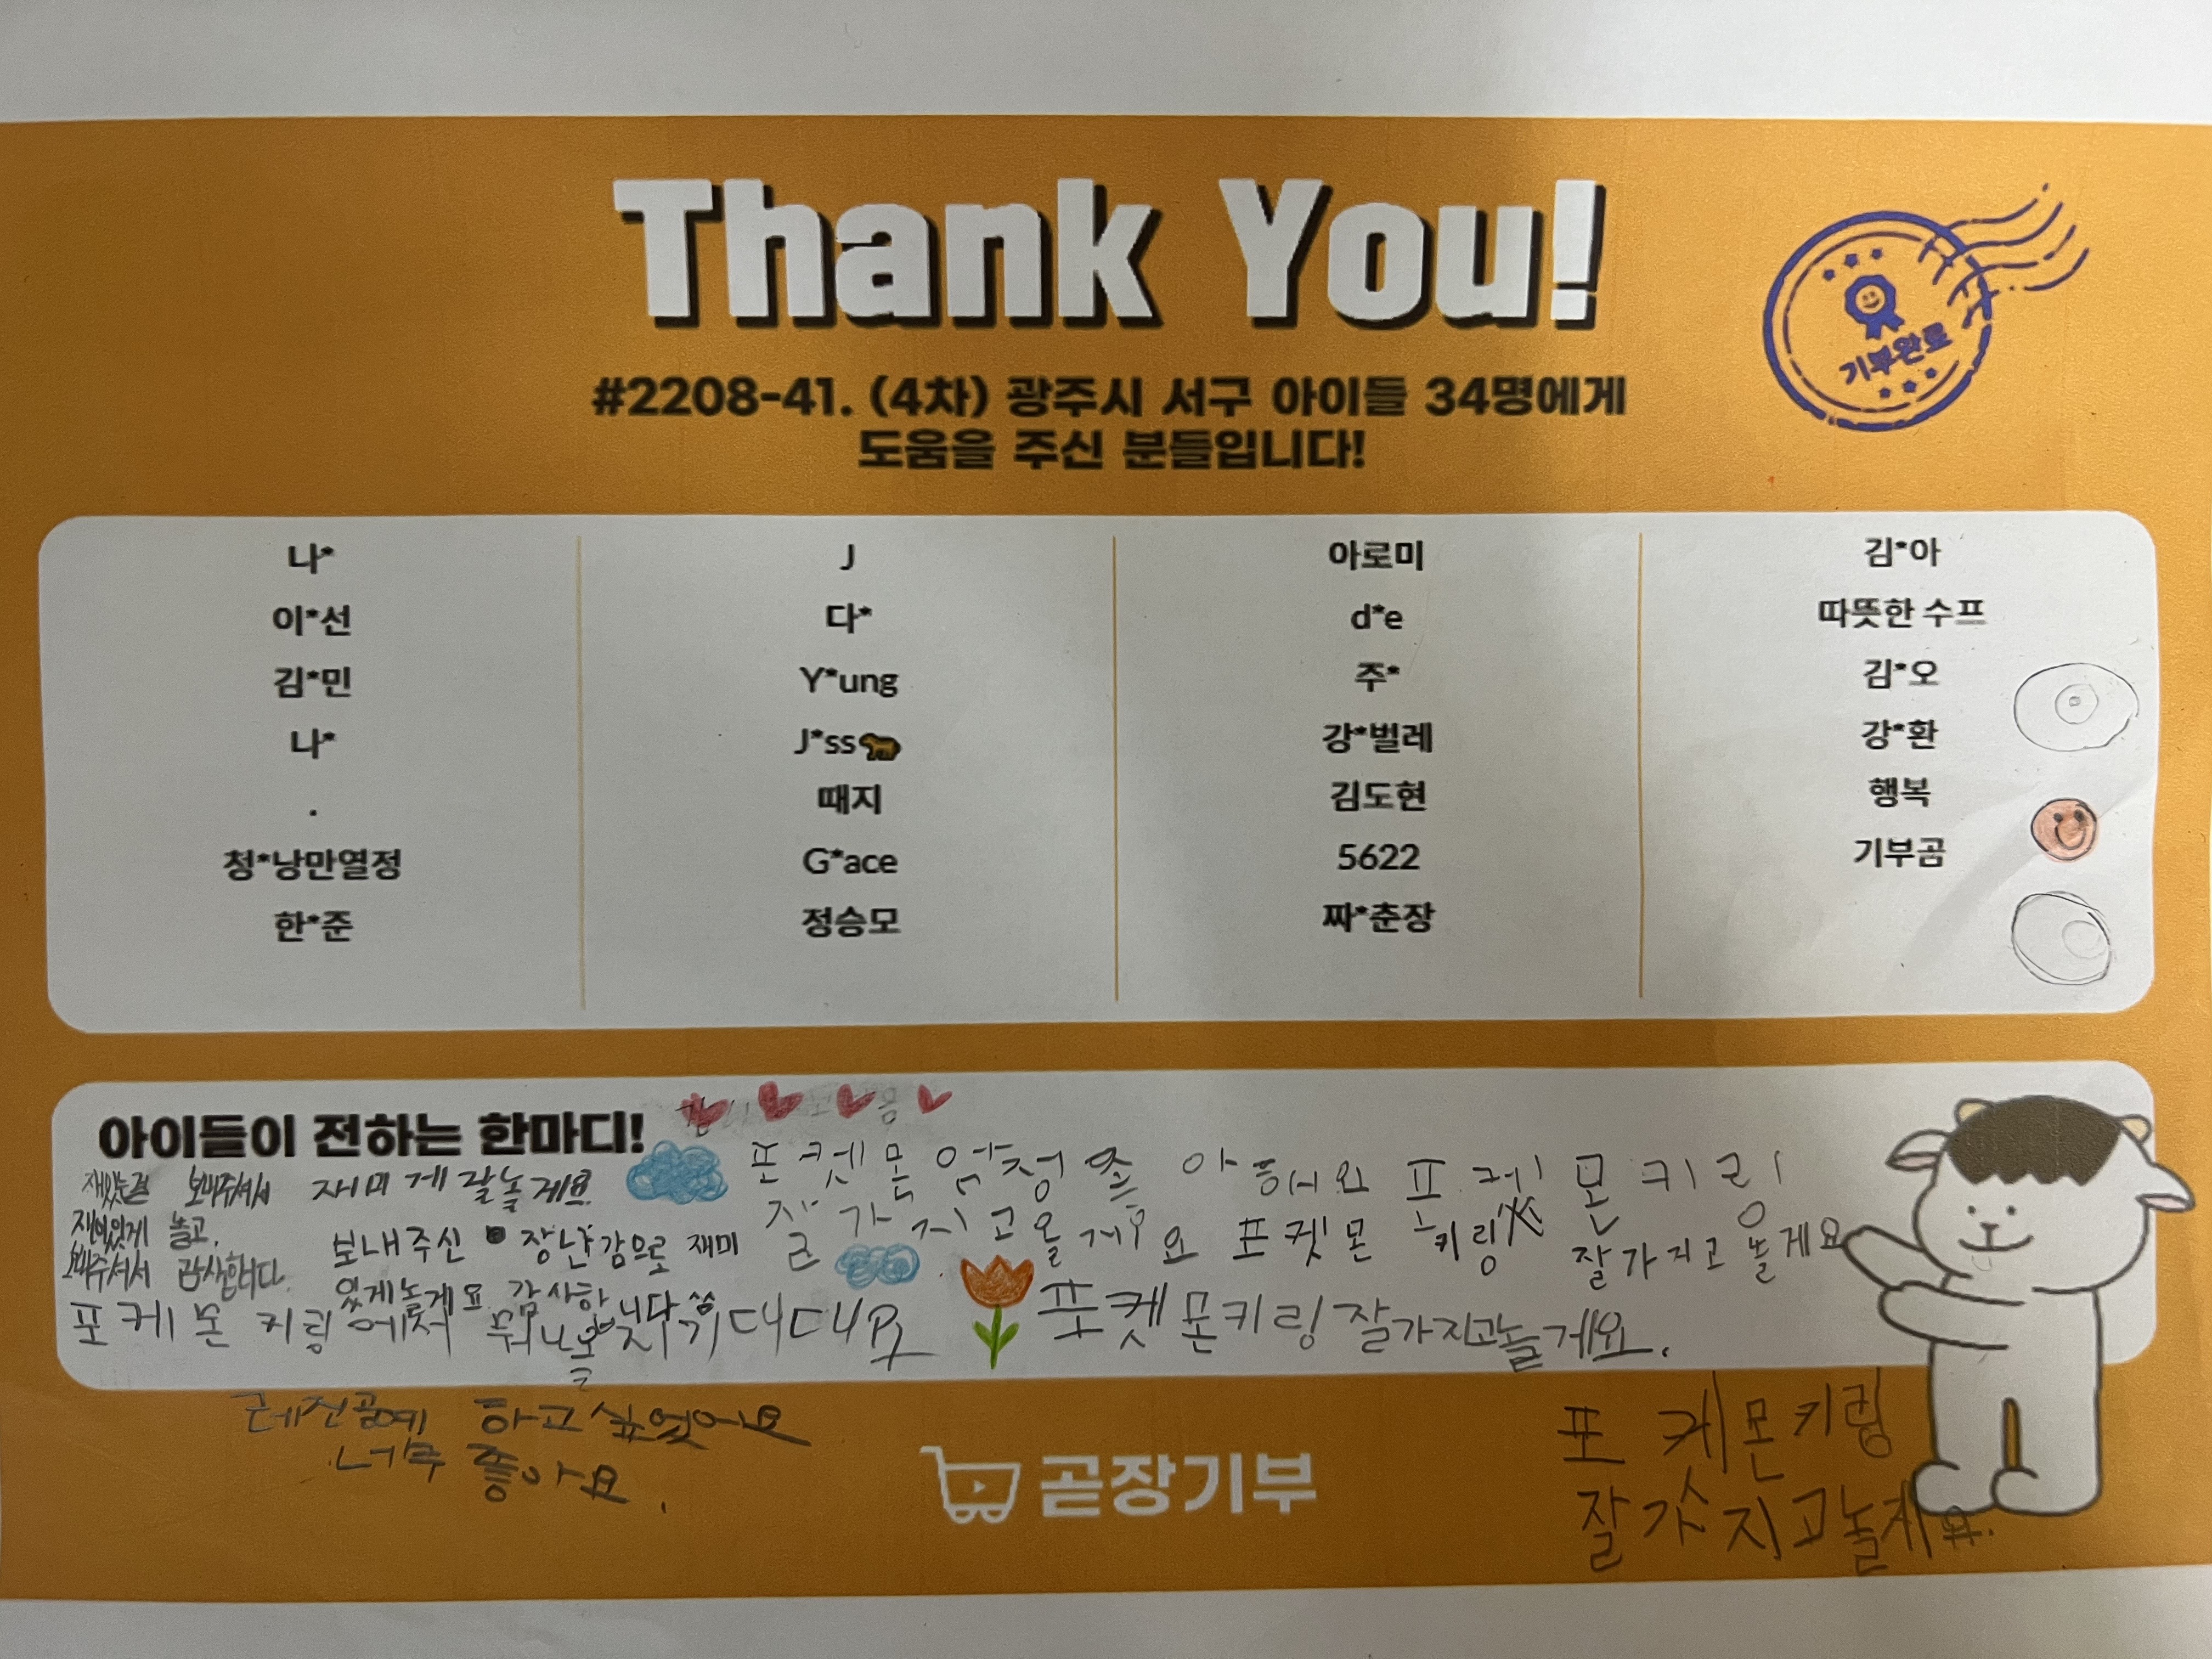 Thank You!
기부완료
#2208-41. (4차) 광주시 서구 아이들 34명에게
도움을 주신 분들입니다!
나*
이*선
김*민
나*
.
청*낭만열정
한*준
J
다*
Y*ung
J*ss
때지
G*ace
정승모
아로미
d*e
주*
강*벌레
김도현
5622
짜*춘장
김*아
따뜻한 수프
김*오
강*환
행복
기부곰
아이들이 전하는 한마디!
재밌는걸 보내주셔서
재밌있게 놀고,
보내주셔서 감사합니다.
재미게 잘놀게요
보내주신 장난감으로 재미
있게놀게요 감사합니다 ^^
포켓몬 엄청 좋아해요 포켓몬 키링
잘가지고올게요
포켓몬 키링 잘가지고 놀게요
포케몬 키링에서 뭐나올지기대대되요
포켓몬키링잘가지고놀게요.
레진공예 하고싶었어요
너무 좋아요.
곧장기부
포케몬키링
잘가지고놀게요.